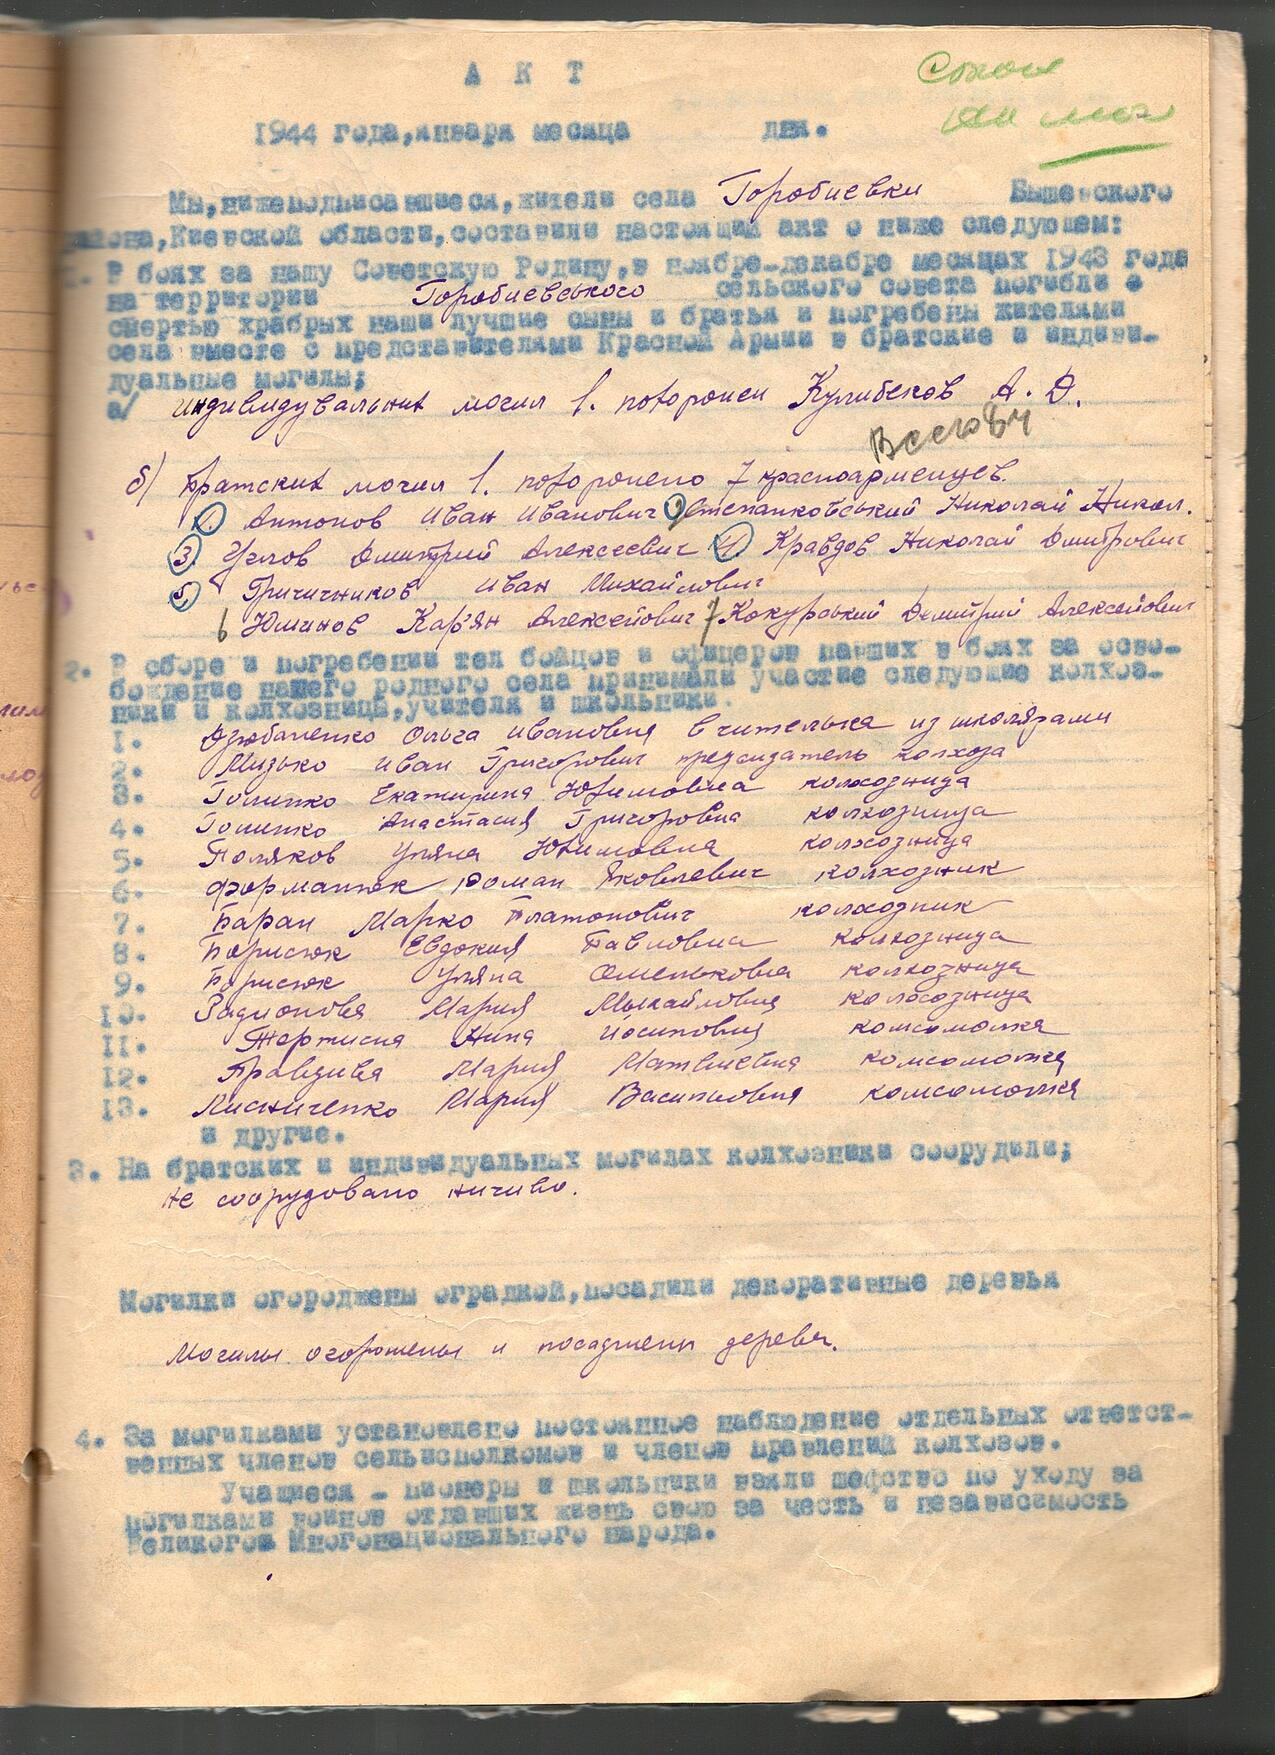 А К Т
1944 года,января месяца дня.
Мы,нижеподписавшиеся,жители села Горобиевки Бышевского
района,Киевской области,составили настоящий акт о ниже следующем:
1. В боях за нашу Советскую Родину,в ноябре-декабре месяцах 1943 года
на территории Горобиевського сельского совета погибли
смертью храбрых наши лучшие сыны и братья и погребены жителями
села вместе с представителями Красной Армии в братские и индиви-
дуальные могилы;
а/ индивидувальних могил 1. похоронен Кулибеков А. Д.
Всего 8ч
б) Братских могил 1. похоронено 7 красноарменцев.
1. Антонов Иван Иванович 2. Степанковський Николай Никол.
3. Углов Дмитрий Алексеевич 4. Кравдов Николай Дмитрович
5. Гричичников Иван Михайлович
6 Юминов Кар'ян Алексейович 7 Кокурський Демитрий Алексейович
2. В сборе и погребении тел бойцов и офицеров павших в боях за осво-
бождение нашего родного села принимали участие следующие колхоз-
ники и колхозница,учителя и школьники.
1. Дзюбаненко Ольга Ивановня вчителька из школярами
2. Мизько Иван Григорович предсидатель колхоза
3. Голинко Екатирина Юхимовна колхозница
4. Голинко Анастасия Григоровна колхозница
5. Поляков Уляна Юхимовня колхозница
6. Форманюк Роман Яковлевич колхозник
7. Баран Марко Платонович колхозник
8. Борисюк Евдокия Павловна колхозница
9. Борисюк Уляна Омельковна колхозница
10. Радионова Мария Мыхайловня колхозница
11. Тертисня Нина Иосиповня комсомолка
12. Правдива Мария Матвиевна комсомолка
13. Лисниченко Мария Васильовня комсомолка
и другие.
3. На братских и индивидуальных могилах колхозники соорудили;
не соорудовано ничиво.
Могилки огороджены оградкой,посадили декоративные деревья
Могилы огорожены и посаджени дерева.
4. За могилками установлено постоянное наблюдение отдельных ответст-
венных членов сельисполкомов и членов правлений колхозов.
Учащиеся - пионеры и школьники взяли шефство по уходу за
могилками воинов отдавших жизнь свою за честь и независимость
Великого Многонационального народа.